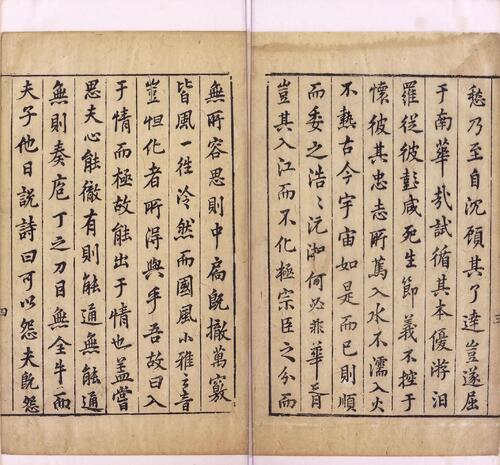 愁乃至自沉頋其了達豈遂屈
于南華哉試循其本優游汨
羅從彼彭咸死生節義不控于
懷彼其忠志所篤入水不濡入火
不熱古今宇宙如是而已則順
而委之浩〻沅湘何必非華胥
豈其入江而不化極宗臣之分而
無所容思則中扄旣撤萬竅
皆風一徃泠然而國風小雅之音
豈怛化者所得與乎吾故曰入
于情而極故能出于情也盖嘗
思夫心能徹有則能通無能通
無則奏庖丁之刀目無全牛而
夫子他日説詩曰可以怨夫旣怨
三
四